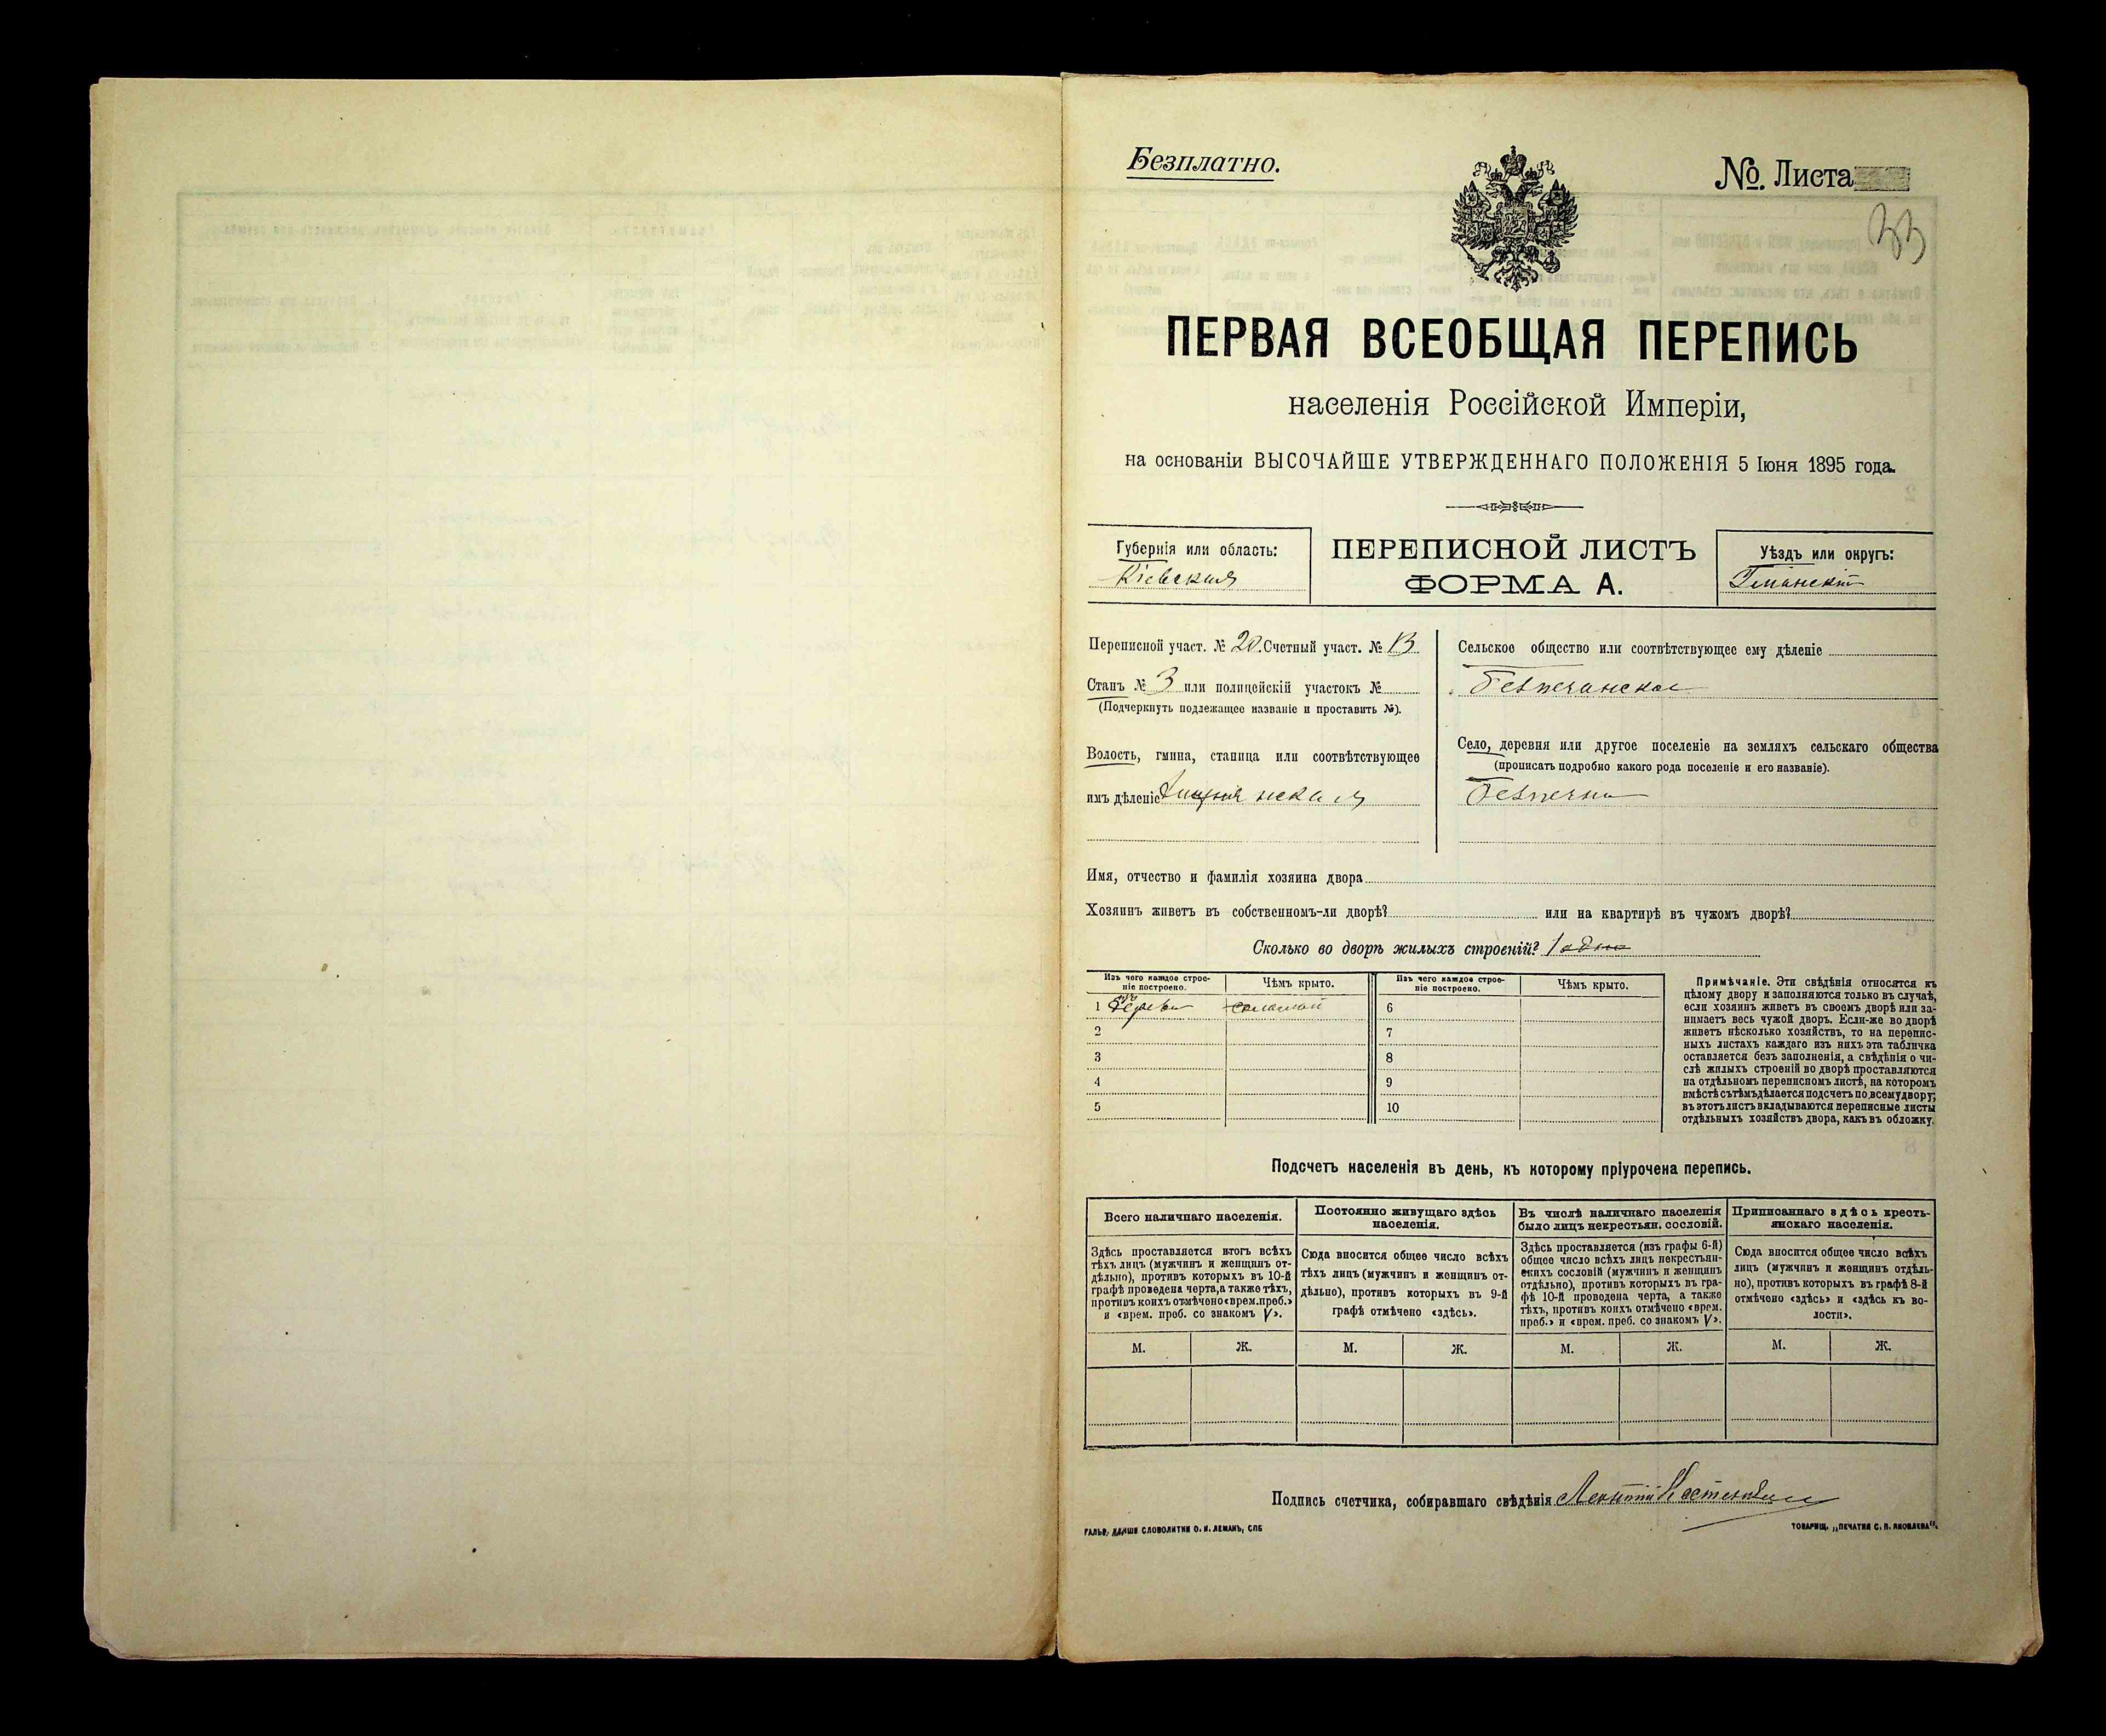 Безплатно.
№. Листа
33
ПЕРВАЯ ВСЕОБЩАЯ ПЕРЕПИСЬ
населенія Россійской Имперіи,
на основаніи ВЫСОЧАЙШЕ УТВЕРЖДЕННАГО ПОЛОЖЕНІЯ 5 Іюня 1895 года.
Губернія или область:
Кіевская
ПЕРЕПИСНОЙ ЛИСТЪ
ФОРМА А.
Уѣздъ или округъ:
Уманскій
Переписной участ. № 20. Счетный участ. № 13
Станъ № 3 или полицейскій участокъ №
(Подчеркнуть подлежащее названіе и проставить №).
Волость, гмина, станица или соотвѣтствующее
имъ дѣленіе
Сельское общество или соотвѣтствующее ему дѣленіе
Безпечанское
Село, деревня или другое поселеніе на земляхъ сельскаго общества
(прописать подробно какого рода поселеніе и его названіе).
Безпечна
Имя, отчество и фамилія хозяина двора
Хозяинъ живетъ въ собственномъ-ли дворѣ? или на квартирѣ въ чужомъ дворѣ?
Сколько во дворѣ жилыхъ строеній? 1 одно
Изъ чего каждое строе-
ніе построено.
Чѣмъ крыто.
Изъ чего каждое строе-
ніе построено.
Чѣмъ крыто.
1 соломой 6
2 7
3 8
4 9
5 10
Примѣчаніе. Эти свѣдѣнія относятся къ
цѣлому двору и заполняются только въ случаѣ,
если хозяинъ живетъ въ своемъ дворѣ или за-
нимаетъ весь чужой дворъ. Если-же во дворѣ
живетъ нѣсколько хозяйствъ, то на перепис-
ныхъ листахъ каждаго изъ нихъ эта табличка
оставляется безъ заполненія, а свѣдѣнія о чи-
слѣ жилыхъ строеній во дворѣ проставляются
на отдѣльномъ переписномъ листѣ, на которомъ
вмѣстѣ съ тѣмъ дѣлается подсчетъ по всему двору;
въ этотъ листъ вкладываются переписные листы
отдѣльныхъ хозяйствъ двора, какъ въ обложку.
Подсчетъ населенія въ день, къ которому пріурочена перепись.
Всего наличнаго населенія.
Здѣсь проставляется итогъ всѣхъ
тѣхъ лицъ (мужчинъ и женщинъ от-
дѣльно), противъ которыхъ въ 10-й
графѣ проведена черта, а также тѣхъ,
противъ коихъ отмѣчено «врем. преб.»
и «врем. преб. со знакомъ V».
М. Ж.
Постоянно живущаго здѣсь
населенія.
Сюда вносится общее число всѣхъ
тѣхъ лицъ (мужчинъ и женщинъ от-
дѣльно), противъ которыхъ въ 9-й
графѣ отмѣчено «здѣсь».
М. Ж.
Въ числѣ наличнаго населенія
было лицъ некрестьян. сословій.
Здѣсь проставляется (изъ графы 6-й)
общее число всѣхъ лицъ некрестьян-
скихъ сословій (мужчинъ и женщинъ
отдѣльно), противъ которыхъ въ гра-
фѣ 10-й проведена черта, а также
тѣхъ, противъ коихъ отмѣчено «врем.
преб.» и «врем. преб. со знакомъ V».
М. Ж.
Приписаннаго здѣсь кресть-
янскаго населенія.
Сюда вносится общее число всѣхъ
лицъ (мужчинъ и женщинъ отдѣль-
но), противъ которыхъ въ графѣ 8-й
отмѣчено «здѣсь» и «здѣсь къ во-
лости».
М. Ж.
Подпись счетчика, собиравшаго свѣдѣнія
СЛОВОЛИТНИ О. И. ЛЕМАНЪ, СПБ
ТОВАРИЩ. „ПЕЧАТНЯ С. П. ЯКОВЛЕВА“.